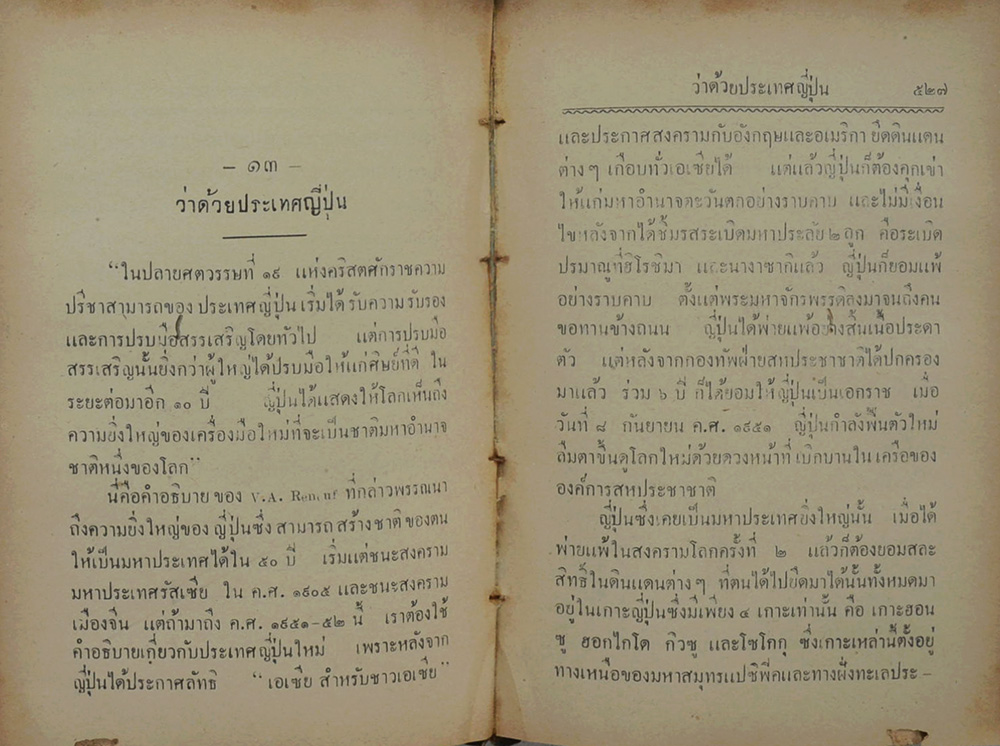 – ๑๓ –
ว่าด้วยประเทศญี่ปุ่น
“ในปลายศตวรรษที่ ๑๙ แห่งคริสตศักราชความ
ปรีชาสามารถของ ประเทศญี่ปุ่น เริ่มได้ รับความ รับรอง
และการปรบมือสรรเสริญโดยทั่วไป แต่การปรบมือ
สรรเสริญนั้นยิ่งกว่าผู้ใหญ่ได้ปรบมือให้แก่ศิษย์ที่ดี ใน
ระยะต่อมาอีก ๑๐ ปี ญี่ปุ่นได้แสดงให้โลกเห็นถึง
ความยิ่งใหญ่ของเครื่องมือใหม่ที่จะเป็นชาติมหาอำนาจ
ชาติหนึ่งของโลก”
นี่คือคำอธิบาย ของ V.A. Renouf ที่กล่าวพรรณนา
ถึงความยิ่งใหญ่ของ ญี่ปุ่นซึ่ง สามารถ สร้างชาติ ของตน
ให้เป็นมหาประเทศได้ใน ๕๐ ปี เริ่มแต่ชนะสงคราม
มหาประเทศรัสเซีย ใน ค.ศ. ๑๙๐๕ และชนะสงคราม
เมืองจีน แต่ถ้ามาถึง ค.ศ. ๑๙๕๑–๕๒ นี้ เราต้องใช้
คำอธิบายเกี่ยวกับประเทศญี่ปุ่นใหม่ เพราะหลังจาก
ญี่ปุ่นได้ประกาศลัทธิ “เอเซีย สำหรับชาวเอเซีย”
ว่าด้วยประเทศญี่ปุ่น ๕๒๗
และประกาศสงครามกับอังกฤษและอเมริกา ยึดดินแดน
ต่างๆ เกือบทั่วเอเซียได้ แต่แล้วญี่ปุ่นก็ต้องคุกเข่า
ให้แก่มหาอำนาจตะวันตกอย่างราบคาบ และไม่มีเงื่อน
ไขหลังจากได้ชิมรสระเบิดมหาประลัย ๒ ลูก คือระเบิด
ปรมาณูที่ฮิโรชิมา และนางาซากิแล้ว ญี่ปุ่นก็ยอมแพ้
อย่างราบคาบ ตั้งแต่พระมหาจักรพรรดิลงมาจนถึงคน
ขอทานข้างถนน ญี่ปุ่นได้พ่ายแพ้อย่างสิ้นเนื้อประดา
ตัว แต่หลังจากกองทัพฝ่ายสหประชาชาติได้ปกครอง
มาแล้ว ร่วม ๖ ปี ก็ได้ยอมให้ญี่ปุ่นเป็นเอกราช เมื่อ
วันที่ ๘ กันยายน ค.ศ. ๑๙๕๑ ญี่ปุ่นกำลังฟื้นตัวใหม่
ลืมตาขึ้นดูโลกใหม่ด้วยดวงหน้าที่ เบิกบานใน เครือของ
องค์การสหประชาชาติ
ญี่ปุ่นซึ่งเคยเป็นมหาประเทศยิ่งใหญ่นั้น เมื่อได้
พ่ายแพ้ในสงครามโลกครั้งที่ ๒ แล้วก็ต้องยอมสละ
สิทธิ์ในดินแดนต่างๆ ที่ตนได้ไปยึดมาได้นั้นทั้งหมดมา
อยู่ในเกาะญี่ปุ่นซึ่งมีเพียง ๔ เกาะเท่านั้น คือ เกาะฮอน
ชู ฮอกไกโด กิวชู และโชโกกุ ซึ่งเกาะเหล่านี้ตั้งอยู่
ทางเหนือของมหาสมุทรแปซิฟิคและทางฝั่งทะเลประ–